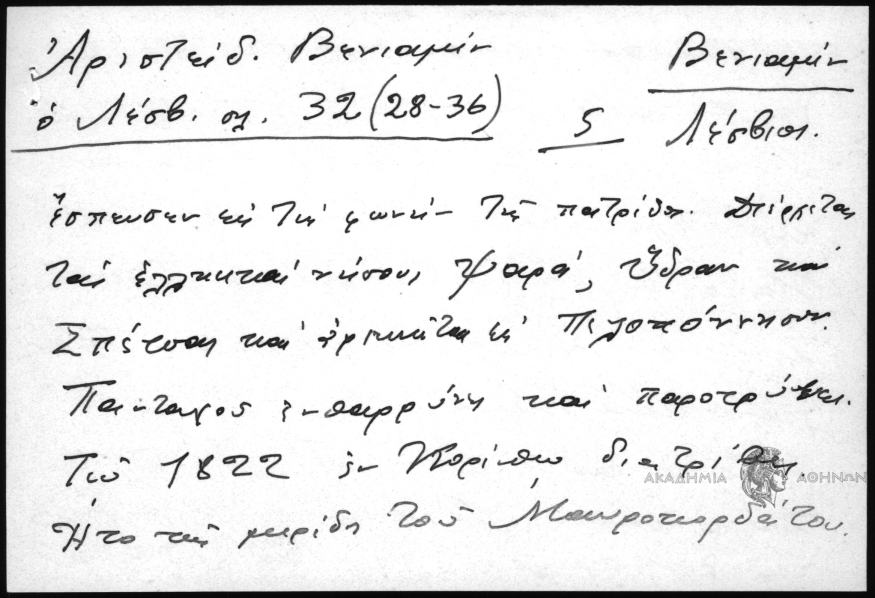 Ἀριστείδ. Βενιαμίν
ὁ Λέσβ. σελ. 32 (28-36)
5
Βενιαμίν
Λέσβιος.
Ἔσπευσεν εἰς τὴν φωνὴν τῆς πατρίδος. Διέρχεται
τὰς ἑλληνικὰς νήσους Ψαρά, Ὕδραν καὶ
Σπέτσας καὶ ἀφικνεῖται εἰς Πελοπόννησον.
Πανταχοῦ ἐνθαρρύνει καὶ παροτρύνει.
Τῷ 1822 ἐν Κορίνθῳ διατρίβει.
Ἦτο τῆς μερίδος τοῦ Μαυροκορδάτου.
ΑΚΑΔΗΜΙΑ ΑΘΗΝΩΝ